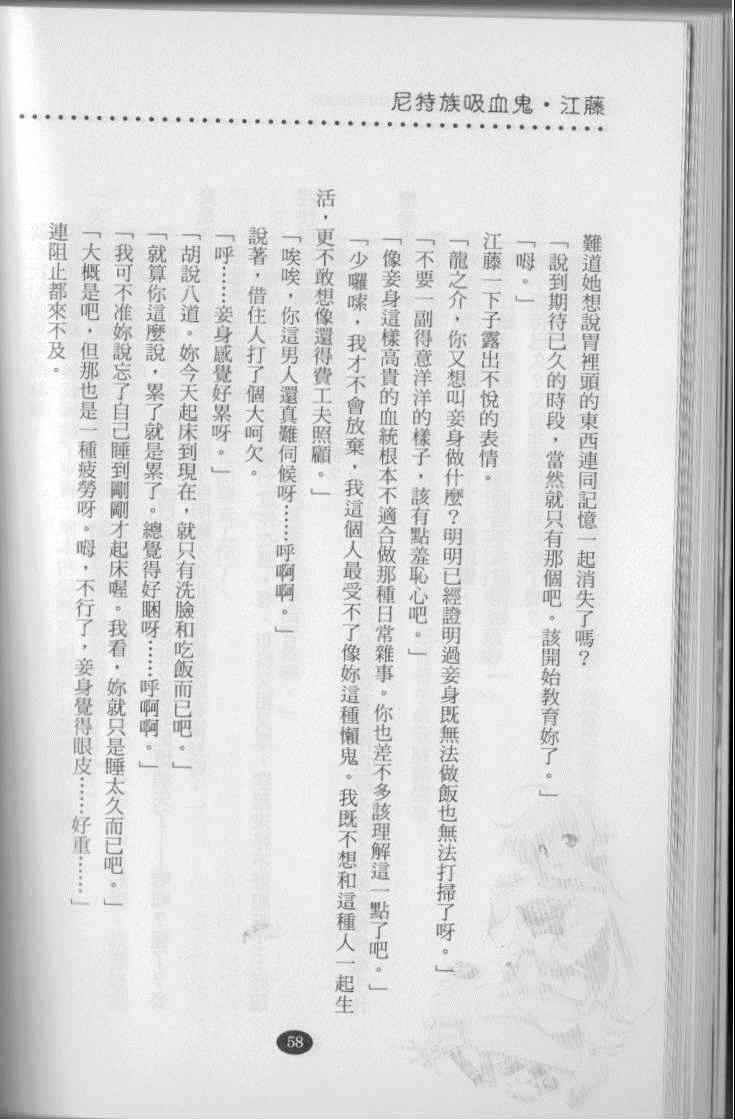 尼特族吸血鬼•江藤
難道她想說胃裡頭的東西連同記憶一起消失了嗎？
「說到期待已久的時段，當然就只有那個吧。該開始教育妳了。」
「嗚。」
江藤一下子露出不悅的表情。
「龍之介，你又想叫妾身做什麼？明明已經證明過妾身既無法做飯也無法打掃了呀。」
「不要一副得意洋洋的樣子，該有點羞恥心吧。」
「像妾身這樣高貴的血統根本不適合做那種日常雜事。你也差不多該理解這一點了吧。」
「少囉嗦，我才不會放棄，我這個人最受不了像妳這種懶鬼。我既不想和這種人一起生
活，更不敢想像還得費工夫照顧。」
「唉唉，你這男人還真難伺候呀……呼啊啊。」
說著，借住人打了個大呵欠。
「呼……妾身感覺好累呀。」
「胡說八道。妳今天起床到現在，就只有洗臉和吃飯而已吧。」
「就算你這麼說，累了就是累了。總覺得好睏呀……呼啊啊。」
「我可不准妳說忘了自己睡到剛剛才起床喔。我看，妳就只是睡太久而已吧。」
「大概是吧，但那也是一種疲勞呀。嗚，不行了，妾身覺得眼皮……好重……」
連阻止都來不及。
58